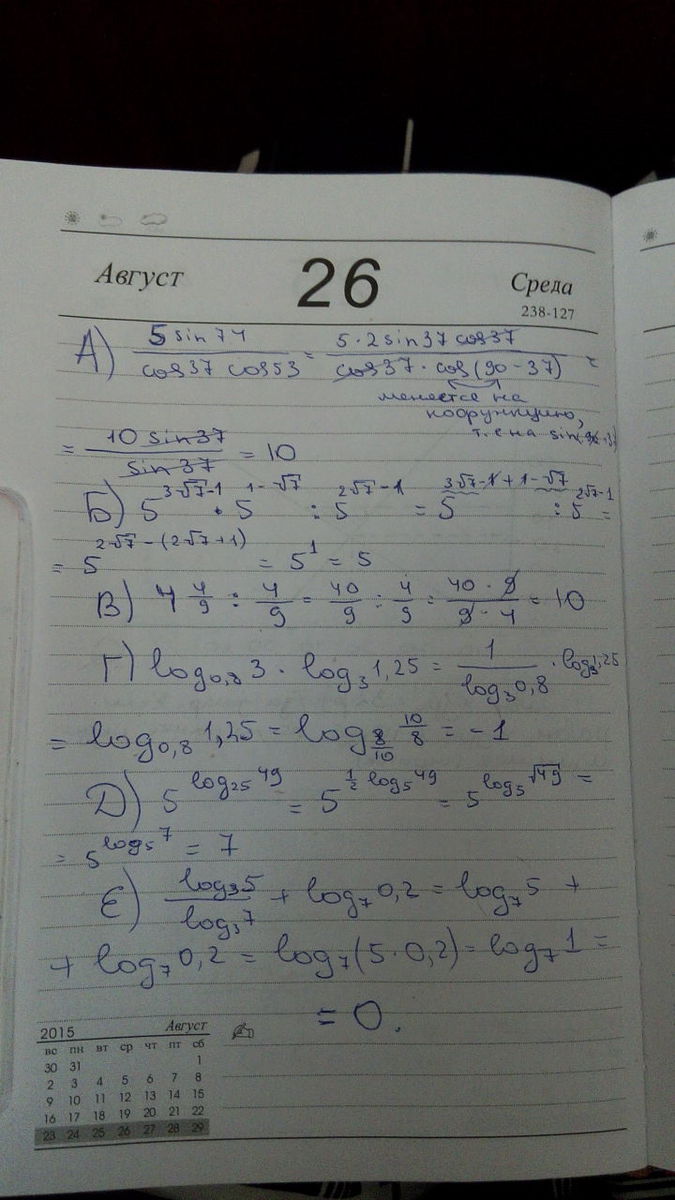 Август 26 Среда
238-127
А) 5 sin 74 / cos 37 cos 53 = 5 · 2 sin 37 cos 37 / cos 37 · cos (90 - 37) =
меняется на
кофункцию,
т.е на sin
= 10 sin 37 / sin 37 = 10
Б) 5^(3√7-1) · 5^(1-√7) : 5^(2√7-1) = 5^(3√7-1+1-√7) : 5^(2√7-1) =
= 5^(2√7-(2√7+1)) = 5^1 = 5
В) 4 4/9 : 4/9 = 40/9 : 4/9 = 40 · 9 / 9 · 4 = 10
Г) log_0,8 3 · log_3 1,25 = 1 / log_3 0,8 · log_3 1,25
= log_0,8 1,25 = log_8/10 10/8 = -1
Д) 5^(log_25 49) = 5^(1/2 log_5 49) = 5^(log_5 √49) =
= 5^(log_5 7) = 7
Е) log_3 5 / log_3 7 + log_7 0,2 = log_7 5 +
+ log_7 0,2 = log_7 (5 · 0,2) = log_7 1 =
= 0.
2015 Август
вс пн вт ср чт пт сб
30 31 1
2 3 4 5 6 7 8
9 10 11 12 13 14 15
16 17 18 19 20 21 22
23 24 25 26 27 28 29